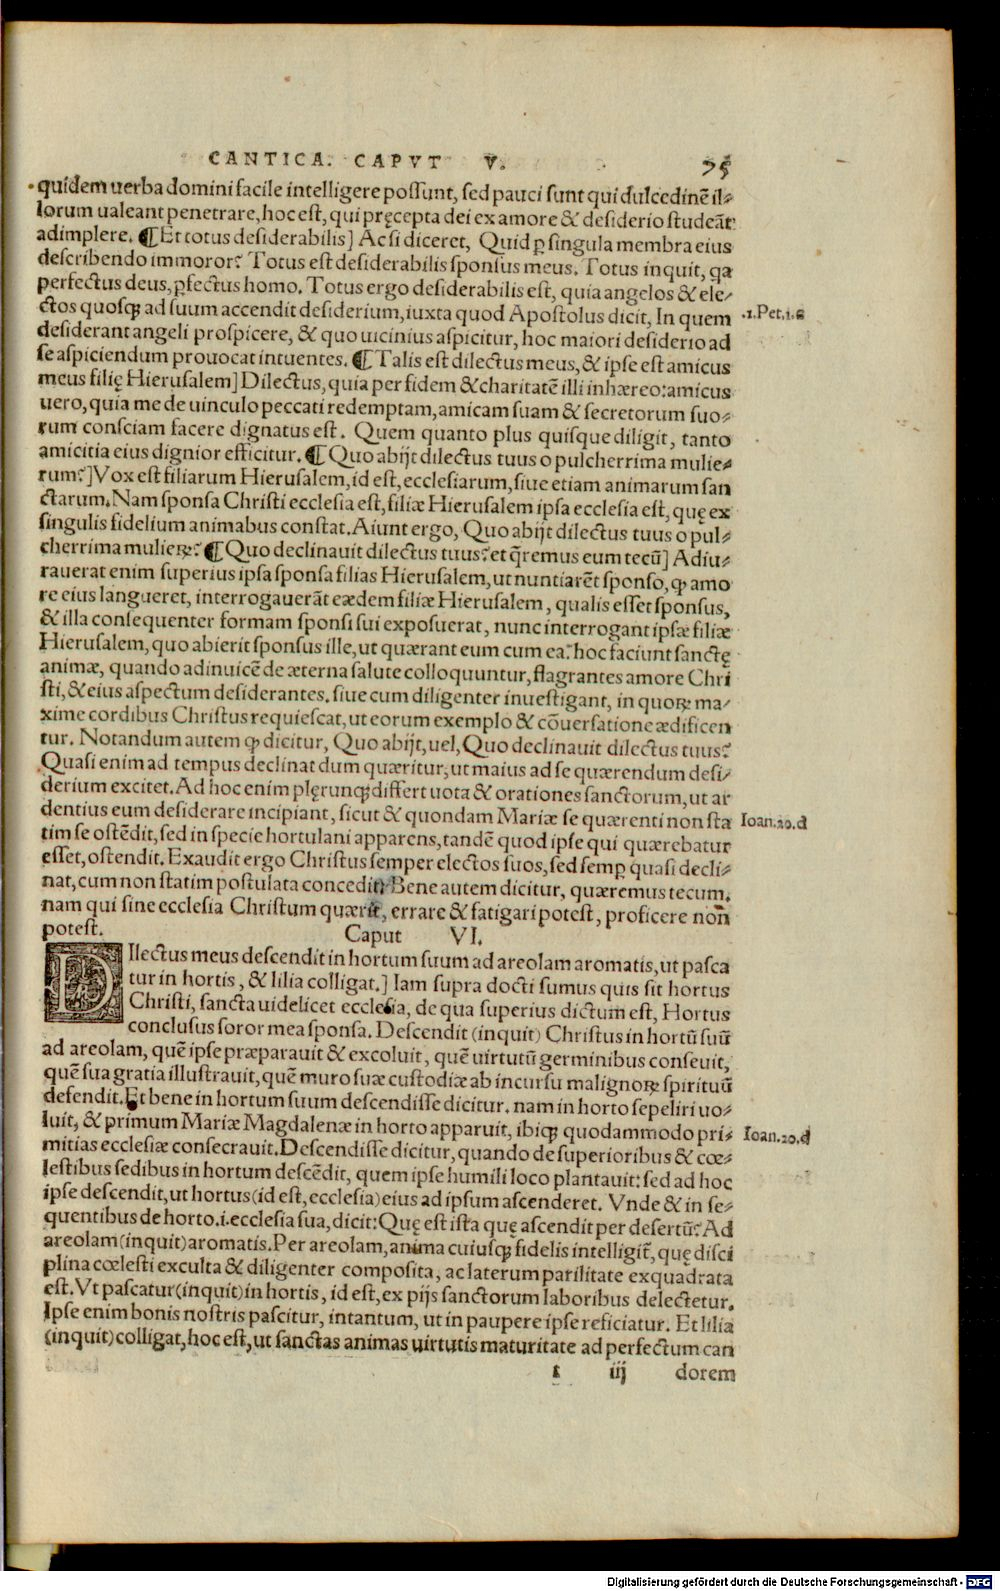 CANTICA. CAPVT V. 75
quidem uerba domini facile intelligere possunt, sed pauci sunt qui dulcedinē il-
lorum ualeant penetrare, hoc est, qui pręcepta dei ex amore & desiderio studeāt
adimplere. ¶ Et totus desiderabilis] Ac si diceret, Quid ꝑ singula membra eius
describendo immoror? Totus est desiderabilis sponsus meus. Totus inquit, qa
perfectus deus, ꝑfectus homo. Totus ergo desiderabilis est, quia angelos & ele-
ctos quosqꝫ ad suum accendit desiderium, iuxta quod Apostolus dicit, In quem
.1.Pet.1.
desiderant angeli prospicere, & quo uicinius aspicitur, hoc maiori desiderio ad
se aspiciendum prouocat intuentes. ¶ Talis est dilectus meus, & ipse est amicus
meus filię Hierusalem] Dilectus, quia per fidem & charitatē illi inhæreo: amicus
uero, quia me de uinculo peccati redemptam, amicam suam & secretorum suo-
rum consciam facere dignatus est. Quem quanto plus quisque diligit, tanto
amicitia eius dignior efficitur. ¶ Quo abijt dilectus tuus o pulcherrima mulie-
rum?] Vox est filiarum Hierusalem, id est, ecclesiarum, siue etiam animarum san
ctarum. Nam sponsa Christi ecclesia est, filiæ Hierusalem ipsa ecclesia est, quę ex
singulis fidelium animabus constat. Aiunt ergo, Quo abijt dilectus tuus o pul-
cherrima mulieꝝ? ¶ Quo declinauit dilectus tuus? et q̄remus eum tecū] Adiu-
rauerat enim superius ipsa sponsa filias Hierusalem, ut nuntiarēt sponso, ꝙ amo
re eius langueret, interrogauerāt eædem filiæ Hierusalem, qualis esset sponsus,
& illa consequenter formam sponsi sui exposuerat, nunc interrogant ipsæ filiæ
Hierusalem, quo abierit sponsus ille, ut quærant eum cum ea: hoc faciunt sanctę
animæ, quando adinuicē de æterna salute colloquuntur, flagrantes amore Chri
sti, & eius aspectum desiderantes. siue cum diligenter inuestigant, in quoꝝ ma-
xime cordibus Christus requiescat, ut eorum exemplo & cōuersatione ædificen
tur. Notandum autem ꝙ dicitur, Quo abijt, uel, Quo declinauit dilectus tuus?
Quasi enim ad tempus declinat dum quæritur, ut maius ad se quærendum desi-
derium excitet. Ad hoc enim plęrunqꝫ differt uota & orationes sanctorum, ut ar
dentius eum desiderare incipiant, sicut & quondam Mariæ se quærenti non sta
Ioan.20.d
tim se ostēdit, sed in specie hortulani apparens, tandē quod ipse qui quærebatur
esset, ostendit. Exaudit ergo Christus semper electos suos, sed semꝑ quasi decli-
nat, cum non statim postulata concedit. Bene autem dicitur, quæremus tecum.
nam qui sine ecclesia Christum quærit, errare & fatigari potest, proficere non
potest.
Caput VI.
DIlectus meus descendit in hortum suum ad areolam aromatis, ut pasca
tur in hortis, & lilia colligat.] Iam supra docti sumus quis sit hortus
Christi, sancta uidelicet ecclesia, de qua superius dictum est, Hortus
conclusus soror mea sponsa. Descendit (inquit) Christus in hortū suū
ad areolam, quē ipse præparauit & excoluit, quē uirtutū germinibus conseuit,
quē sua gratia illustrauit, quē muro suæ custodiæ ab incursu malignoꝝ spirituū
defendit. Et bene in hortum suum descendisse dicitur. nam in horto sepeliri uo-
luit, & primum Mariæ Magdalenæ in horto apparuit, ibiqꝫ quodammodo pri-
Ioan.20.d
mitias ecclesiæ consecrauit. Descendisse dicitur, quando de superioribus & cœ-
lestibus sedibus in hortum descēdit, quem ipse humili loco plantauit: sed ad hoc
ipse descendit, ut hortus (id est, ecclesia) eius ad ipsum ascenderet. Vnde & in se-
quentibus de horto .i. ecclesia sua, dicit: Quę est ista quę ascendit per desertū? Ad
areolam (inquit) aromatis. Per areolam, anima cuiusqꝫ fidelis intelligit̄, quę disci
plina cœlesti exculta & diligenter composita, ac laterum parilitate exquadrata
est. Vt pascatur (inquit) in hortis, id est, ex pijs sanctorum laboribus delectetur.
Ipse enim bonis nostris pascitur, intantum, ut in paupere ipse reficiatur. Et lilia
(inquit) colligat, hoc est, ut sanctas animas uirtutis maturitate ad perfectum can
iij dorem
Digitalisierung gefördert durch die Deutsche Forschungsgemeinschaft - DFG